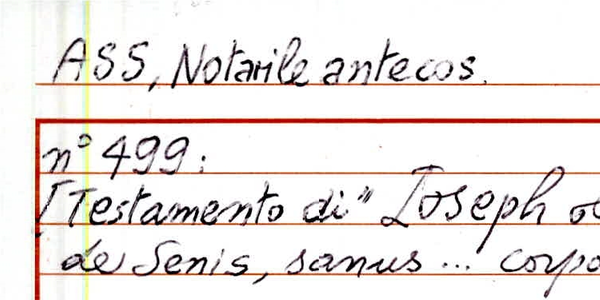 ASS, Notarile antecos.
n° 499:
[Testamento di" Ioseph
de Senis, sanus ... corpo